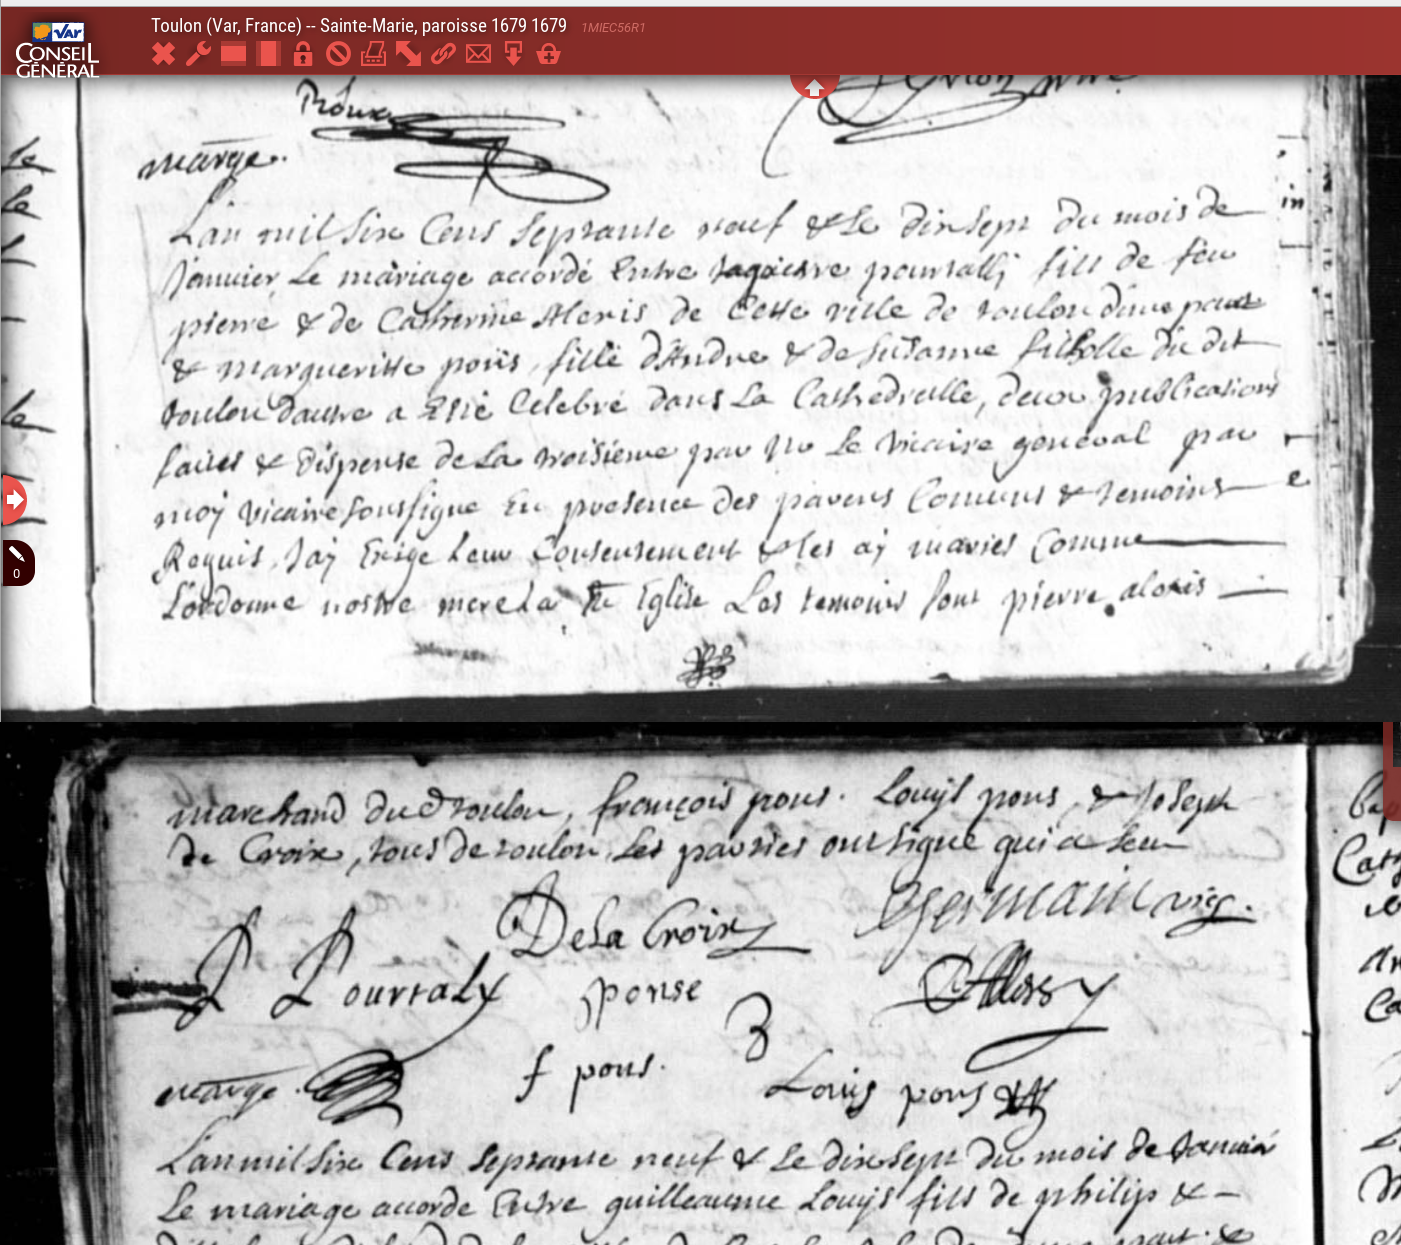 Toulon (Var, France) -- Sainte-Marie, paroisse 1679 1679 1MIEC56R1
VAR
CONSEIL
GÉNÉRAL
0
Roux
mariage.
Lan mil six Cens septante neuf & Le dixsept du mois de
Janvier Le mariage accordé Entre pourtallj fils de feu
pierre & de Catherine Alexis de Cette ville de toulon dune part
& margueritte pons, fille dAndre & de Susanne du dit
toulon dautre a Esté Celebré dans La Cathedralle, deux publications
faites & dispense de La troisieme par Mr Le Vicaire general par
moy Vicaire soussigne En presence des parens Comuns & temoins
Requis, Jaÿ Exigé Leur Consentement & les aÿ mariés Comme
Lordonne nostre mere La Ste Eglise Les temoins sont pierre alexis
marchand du d toulon, françois pons. Louÿs pons, & Joseph
de Croix, tous de toulon, Les parties ont signé qui a sceu
De La Croix
Germain vic.
P Pourtaly
ponse
Alexsy
f pons.
Louis pons
mariage.
Lan mil six Cens septante neuf & Le dixsept du mois de Janvier
Le mariage accordé Entre guilleaume Louÿs fils de philip &